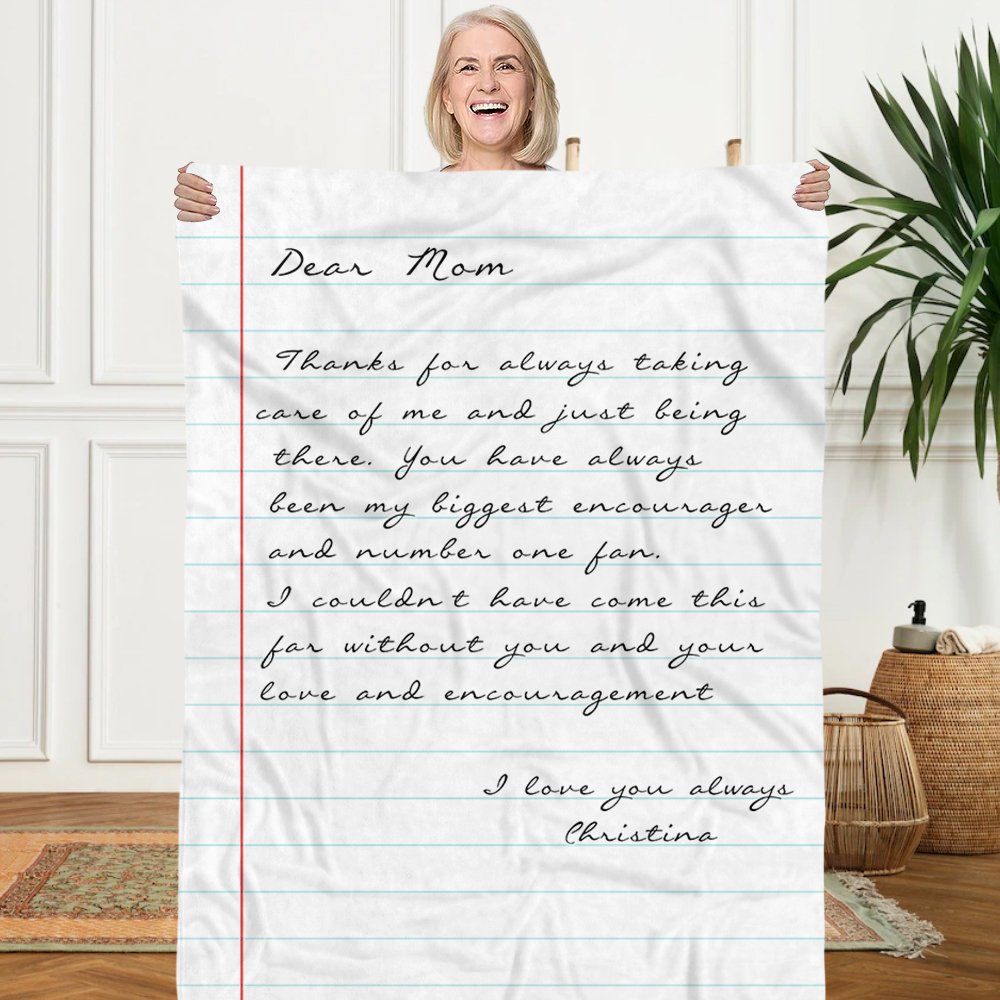 Dear Mom
Thanks for always taking
care of me and just being
there. You have always
been my biggest encourager
and number one fan.
I couldn t have come this
far without you and your
love and encouragement
I love you always
Christina